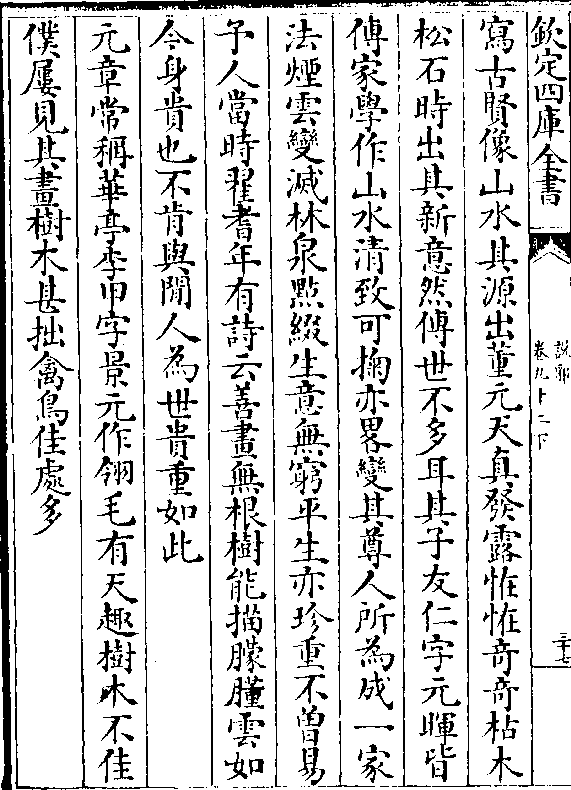 欽定四庫全書
說郛
卷九十二下
三十七
寫古賢像山水其源出董元天真發露恠恠竒竒枯木
松石時出其新意然傳世不多耳其子友仁字元暉皆
傳家學作山水清致可掬亦畧變其尊人所為成一家
法煙雲變滅林泉㸃綴生意無窮平生亦珍重不曽易
予人當時翟耆年有詩云善畫無根樹能描朦朣雲如
今身貴也不肯與閒人為世貴重如此
元章常稱華亭李甲字景元作翎毛有天趣樹木不佳
僕屢見其畫樹木甚拙禽鳥佳處多